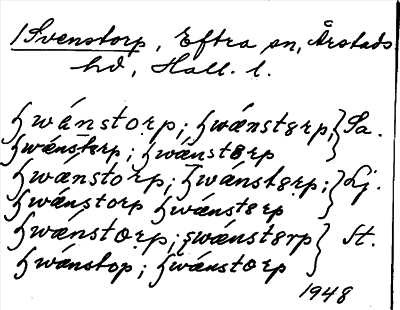 /Svenstorp, Eftra sn, Årstads
hd, Hall. l.
ʒwánstorp; ʒwænstɵrp, } Sa.
ʒwænstɵrp; ʒwánstɵrp
ʒwænstorp; ʒwánstɵrp; } Lj.
ʒwánstorp ʒwænstɵrp
ʒwánstorp; ʒwánstɵrp } St.
ʒwánstop; ʒwánstorp
1948